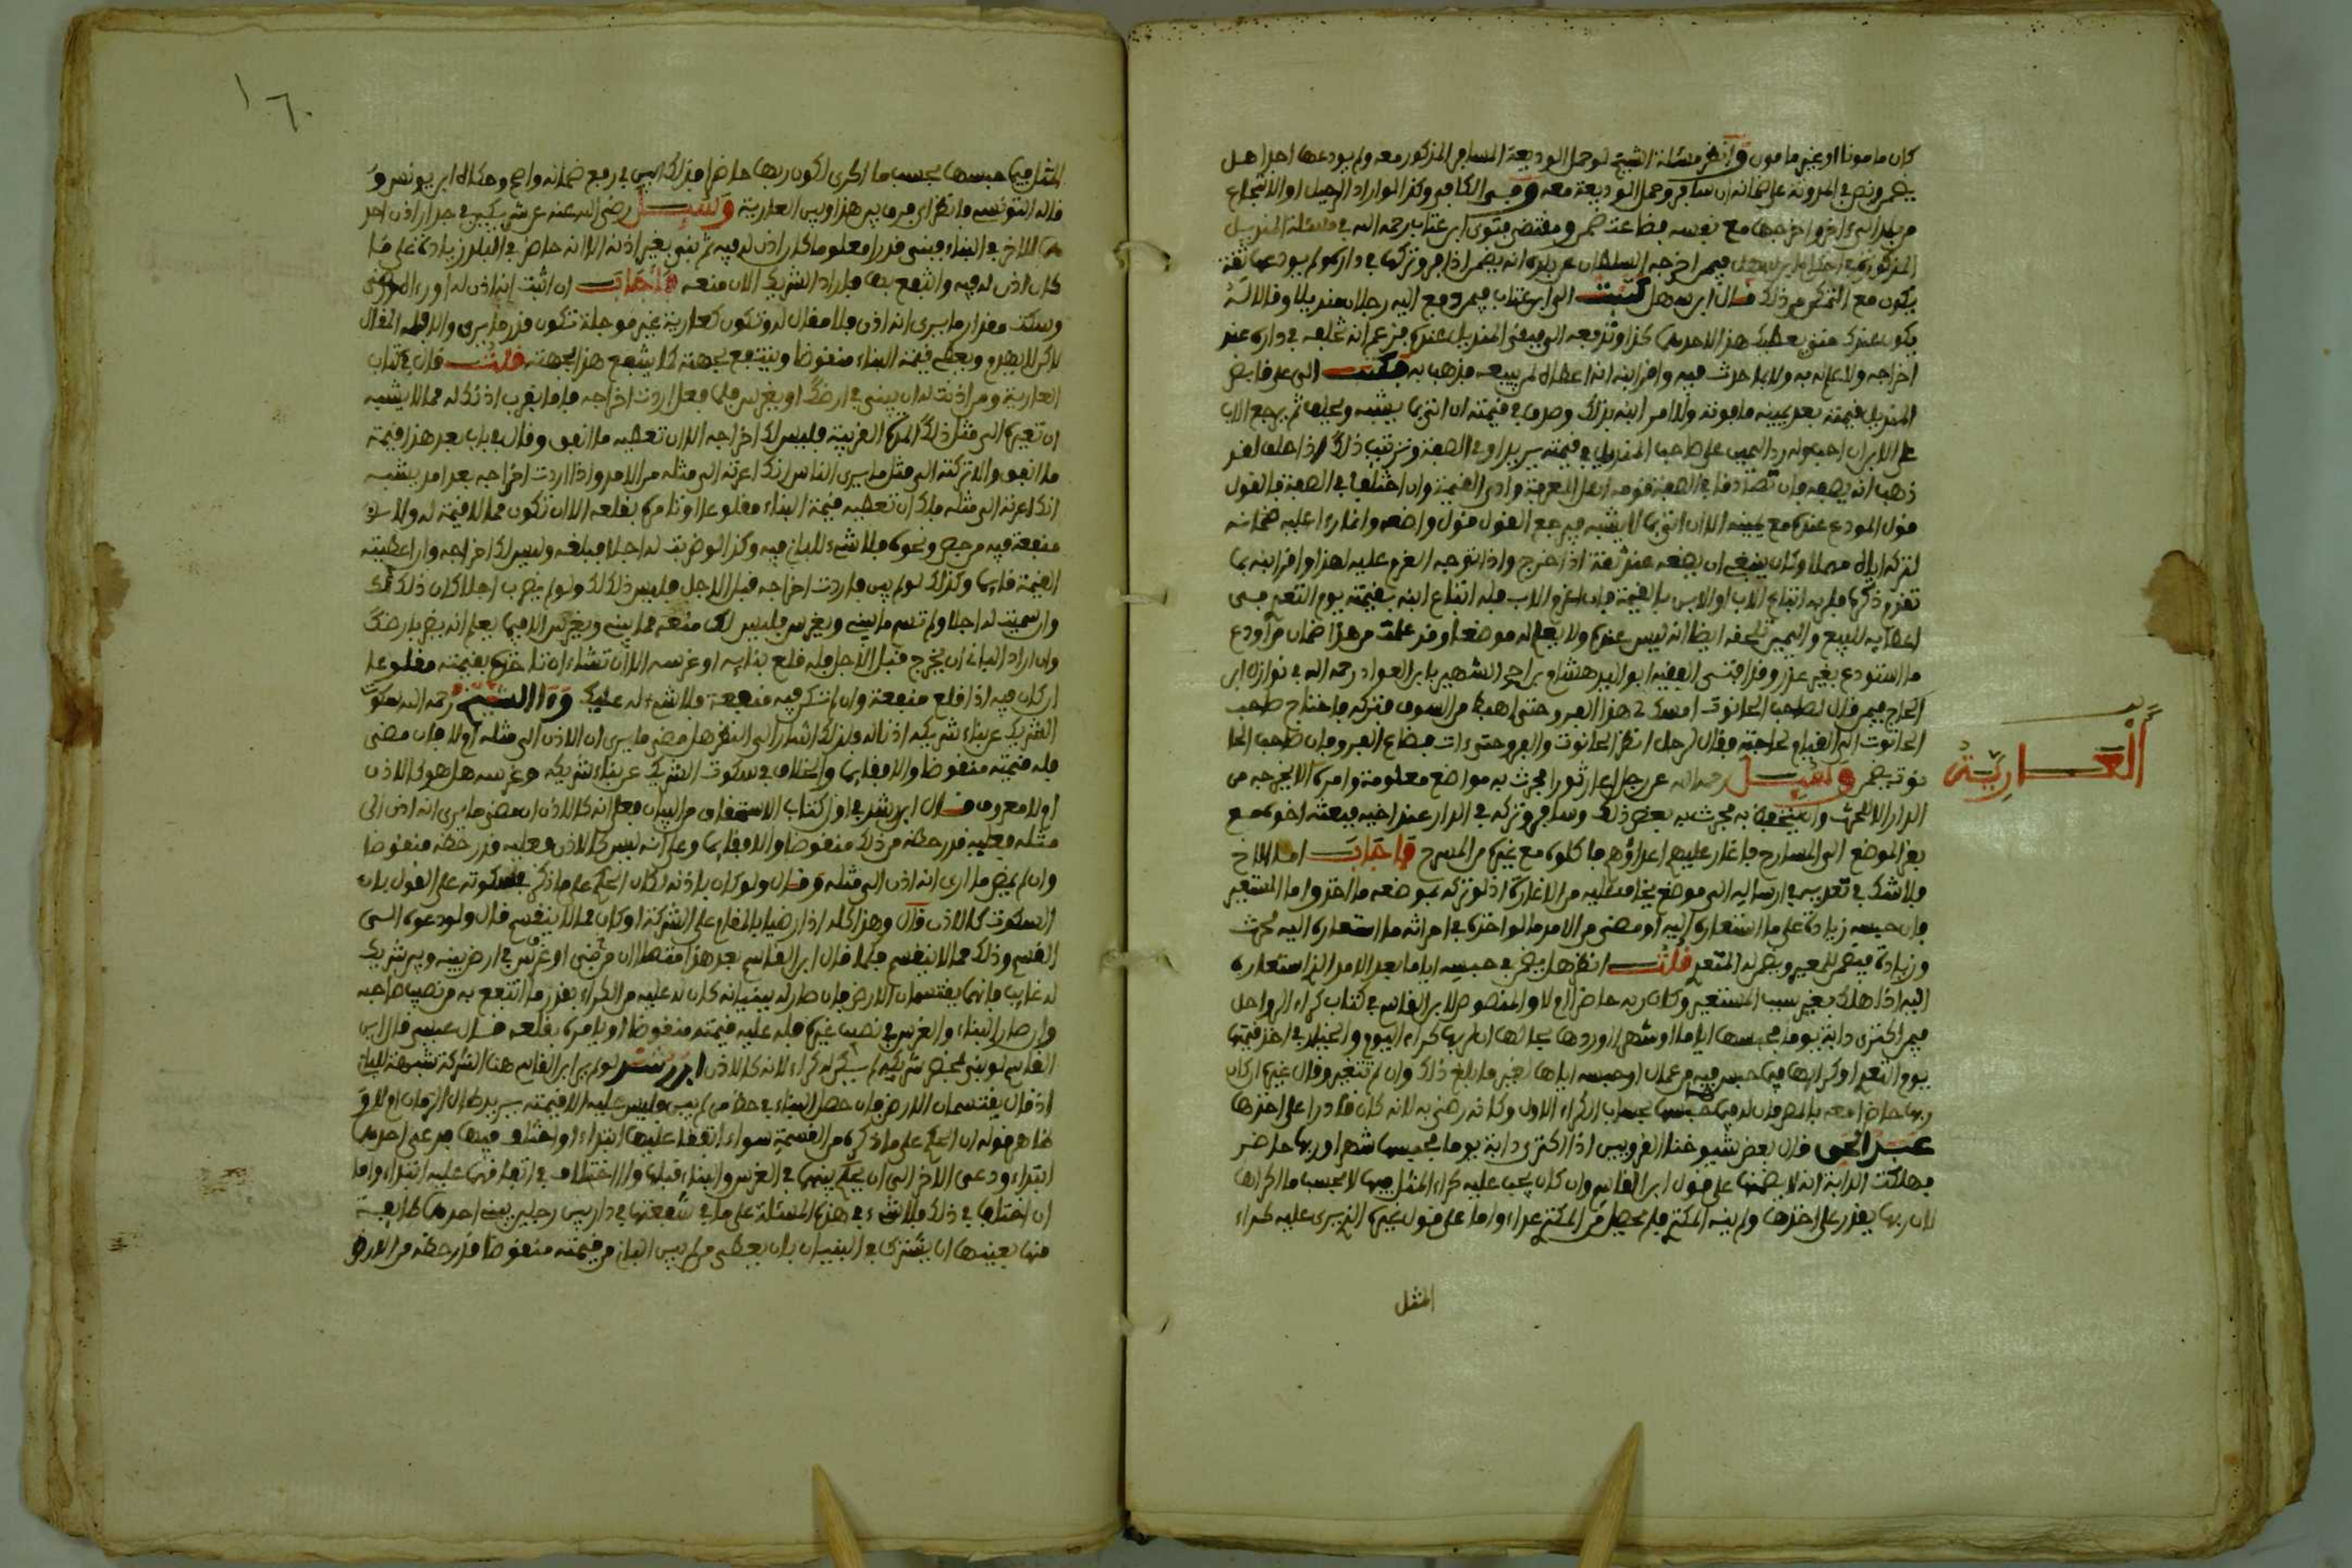 كان مامونا او غير مامون وانظر مسئلة الشيخ لو حمل الوديعة المسافر المذكور معه ولم يودعها اجدا هل
يضمن ونص في المدونة على ضمانه ان سافر وحمل الوديعة معه وفي الكافي وكذا لو اراد الرحيل او الانتجاع
من بلد الى اخر واخرجها مع نفسه فضاعت ضمن ومقتضى فتوى ابن عتاب رحمه الله في مسئلة المنديل
المذكورة في احكام ابن سهل فيمن اخرجه السلطان عن بلده انه يضمن اذا وتركها في داره ولم يودعها ثقة
يكون مع التمكن من ذلك قال ابن سهل كتبت الى ابن عتاب فيمن دفع اليه رجل منديلا وقال له
يكون عندك حتى يعطيك هذا الاخر كذا وتدفعه الي فبقي المنديل عنده فزعم انه تلف في داره عند
اخراجه ولا علم له به ولا بما حدث فيه واقر ابنه انه اعطاه لمن يبيعه فذهب به فكتب الي
المنديل قيمته بعد يمينه ما فوته ولا امر ابنه بذلك وصدق في قيمته ان اتى بما يشبه ويحلف ثم يرجع الاب
على الابن ان احب وله رد اليمين على صاحب المنديل في قيمته او في الصفة وترتيب ذلك اذا حلف لقد
ذهب انه يصفه فان تصادقا في الصفة قومه اهل المعرفة وادى القيمة وان اختلفا في الصفة فالقول
قول المودع عنده مع يمينه الا ان اتى بما لا يشبه فيرجع القول قول واضعه وانما راءا عليه ضمانه
لتركه اياه مهملا وكان ينبغي ان يضعه عند ثقة اذا خرج واذا توجه الغرم عليه لهذا واقر ابنه بما
تقدم ذكره فلربه اتباع الاب او الابن بالقيمة فان اغرم الاب فله اتباع ابنه بقيمته يوم التعدي متى
اعطاه للبيع واليمين تلحقه ايضا انه ليس عنده ولا يعلم له موضعا وقد علمت من هذا ضمان من اودع
ما استودع بغير عذر وقد افتى الفقيه ابو الوليد هشام بن احمد الشهير بابن العواد رحمه الله في نوازل ابن
الحاج فيمن قال لصاحب الحانوت امسك لي هذا الفرو حتى اهبط من السوق فتركه فاحتاج صاحب
الحانوت الى القيام لحاجته فقال لرجل انظر الحانوت والفرو حتى ءات فضاع الفرو فان صاحب الحا
نوت يضمن وسئل رحمه الله عن رجل اعار ثورا يحرث به مواضع معلومة وامره الا يخرجه من
العارية
الدار الا للحرث به يحرث به بعض ذلك وسافر وتركه في الدار عند اخيه فبعثه اخوه مع
بقر الموضع الى المسارح فاغار عليهم اعداؤهم فاكلوه مع غيره من المسرح فاجاب اما الاخ
فلا شك في تعديه في ارساله الى موضع يخاف عليه من الاغارة اذ لو تركه بموضعه ما اخذ واما المستعير
فان حبسه زيادة على ما استعاره اليه او مضى من الامد ما لو اخذ في حراثة ما استعاره اليه لحرث
وزيادة فيضمن للمعير ويضمن له المتعدي قلت انظر هل يضمن في حبسه اياما بعد الامد الذي استعاره
اليه اذا هلك بغير سبب المستعير وكان ربه حاضرا او لا والمنصوص لابن القاسم في كتاب كراء الرواحل
فيمن اكترى دابة يوما فحبسها اياما او شهرا وردها بحالها ان لربها كراء اليوم والخيار في اخذ قيمتها
يوم التعدي او كرائها فيما حبس فيه من عمل او حبسه اياها لغير ما بلغ ذلك وان لم تتغير وقال غيره ان كان
ربها حاضرا معه بالمصر فان له فيما حبسها بحساب الكراء الاول وكانه رضي به لانه كان قادرا على اخذها
عبد الحق قال بعض شيوخنا القرويين اذا اكترى دابة يوما فحبسها شهرا وربها حاضر
فهلكت الدابة انه لا يضمنها على قول ابن القاسم وان كان يجب عليه كراء المثل فيها لا بحسب ما اكراها
لان ربها يقدر على اخذها ولم ينه المكتري فلم يحصل من المكتري عداء واما على قول غيره الذي يرى عليه كراء
المثل
١٦٠
المثل فيما حبسها بحسب ما اكرى لكون ربها حاضرا فبذلك ابين في رفع ضمانه واضح وحكاه ابن يونس و
قاله التونسي فانظر اي فرق بين هذا وبين العارية وسئل رضي الله عنه عن شريكين في جدار اذن احد
هما للاخر في البناء فبنى قدرا معلوما كان اذن له فيه ثم بنى بغير اذنه الا انه حاضر في البلد زيادة على ما
كان اذن له فيه وانتفع بها فاراد الشريك الان منعه فاجاب ان اثبت انه اذن له او رءاه
وسكت مقدار ما يرى انه اذن فلا مقال له وتكون كعارية غير موجلة تكون قدر ما يرى والا فله المقال
لاكن لا يهدم ويعطى قيمة البناء منقوضا وينتفع بجهته كما ينتفع هذا بجهته قلت قال في كتاب
العارية ومن اذنت له ان يبني في ارضك او يغرس فلما فعل اردت اخراجه فاما بقرب اذنك له مما لا يشبه
ان تعيره الى مثل تلك المدة القريبة فليس لك اخراجه الا ان تعطيه ما انفق وقال في باب بعد هذا قيمة
ما انفق والا تركته الى مثل ما يرى الناس انك اعرته الى مثله من الامد واذا اردت اخراجه بعد امد يشبه
انك اعرته الى مثله فلك ان تعطيه قيمة البناء مقلوعا او تامره بقلعه الا ان تكون مما لا قيمة له ولا
منفعة فيه من جص ونحوه فلا شيء للباني فيه وكذا لو ضربت له اجلا فبلغه وليس لك اخراجه وان اعطيته
القيمة قايما وكذلك لو لم يبن فاردت اخراجه قبل الاجل فليس ذلك لك ولو لم يضرب اجلا كان ذلك لك
وان سميت له اجلا ولم تسم ما يبني ويغرس فليس لك منعه مما يبني ويغرس الا فيما يعلم انه يضر بارضك
وان اراد الباني ان يخرج قبل الاجل فله قلع بنايه او غرسه الا ان تشاء ان تاخذه بقيمته مقلوعا
ان كان فيه اذا قلع منفعة وان لم تكن فيه منفعة فلا شيء له عليك ورءا الشيخ رحمه الله سكوت
الشريك عن بناء شريكه اذنا له فلذلك اشار الى النظر هل مضى ما يرى ان الاذن الى مثله او لا فان مضى
فله قيمته منقوضا والا فقايما والخلاف في سكوت الشريك عن بناء شريكه وغرسه هل هو كالاذن
او لا معروف قال ابن رشد في اول كتاب الاستحقاق من البيان فعلى انه كالاذن ان مضى ما يرى انه اذن الى
مثله فعليه قدر حظه من ذلك منقوضا والا فقايما وعلى انه ليس كالاذن فعليه قدر حظه منقوضا
وان لم يمض ما ارى انه اذن الى مثله وقال ولو كان باذنه لكان الحكم على ما ذكره بسكوته على القول بان
السكوت كالاذن قال وهذا كله اذا رضيا بالمقام على الشركة او كان مما لا ينقسم قال ولو دعوه الى
القسم وذلك مما لا ينقسم فكما قال ابن القاسم بعد هذا متصلا ان من بنى او غرس في ارض بينه وبين شريك
له غايب فانهما يقتسمان الارض فان صار له بنيانه كان له عليه من الكراء بقدر ما انتفع به من نصيب صاحبه
وان صار البناء والغرس في نصيب غيره فله عليه قيمته منقوضا او يامره بقلعه قال عيسى قال ابن
القاسم لو بنى بمحضر شريكه لم يكن له كراء لانه كالاذن ابن رشد لم ير ابن القاسم هنا الشركة شبهة للباني
اذ قال يقتسمان الارض فان حصل البناء في حظ من لم يبن فليس عليه الا قيمته يريد طال الزمان او لا و
ظاهر قوله ان الحكم على ما ذكره من القسمة سواء اتفقا عليها ابتداء او اختلف فيها فدعى احدهما
ابتداء ودعى الاخر الى ان يحكم بينهما في الغرس والبناء قبلها ولا اختلاف في اتفاقهما عليه ابتداء واما
ان اختلفا في ذلك فلا شيء في هذه المسئلة على ما في شفعتها في دار بين رجلين يبني احدهما طايفة
منها بعينها ان يشتري في البنيان بان يعطي من لم يبن الباني من قيمته منقوضا قدر حظه من الارض